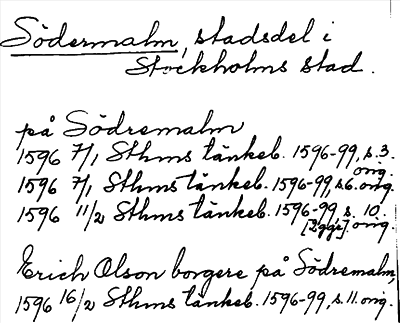 Södermalm, stadsdel i
Stockholms stad.
på Södremalm
1596 7/1 Sthms tänkeb. 1596-99, s. 3.
orig.
1596 7/1 Sthms tänkeb. 1596-99, s 6. orig.
1596 11/2 Sthms tänkeb. 1596-99, s. 10.
[2 ggr]. orig.
Erich Olson borgere på Södremalm,
1596 16/2 Sthms tänkeb. 1596-99, s. 11. orig.